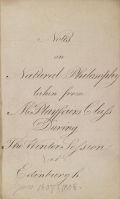 Notes
on
Natural Philosophy
taken from
Mr Playfairs Class
During
The Winter Session
at
Edinburgh